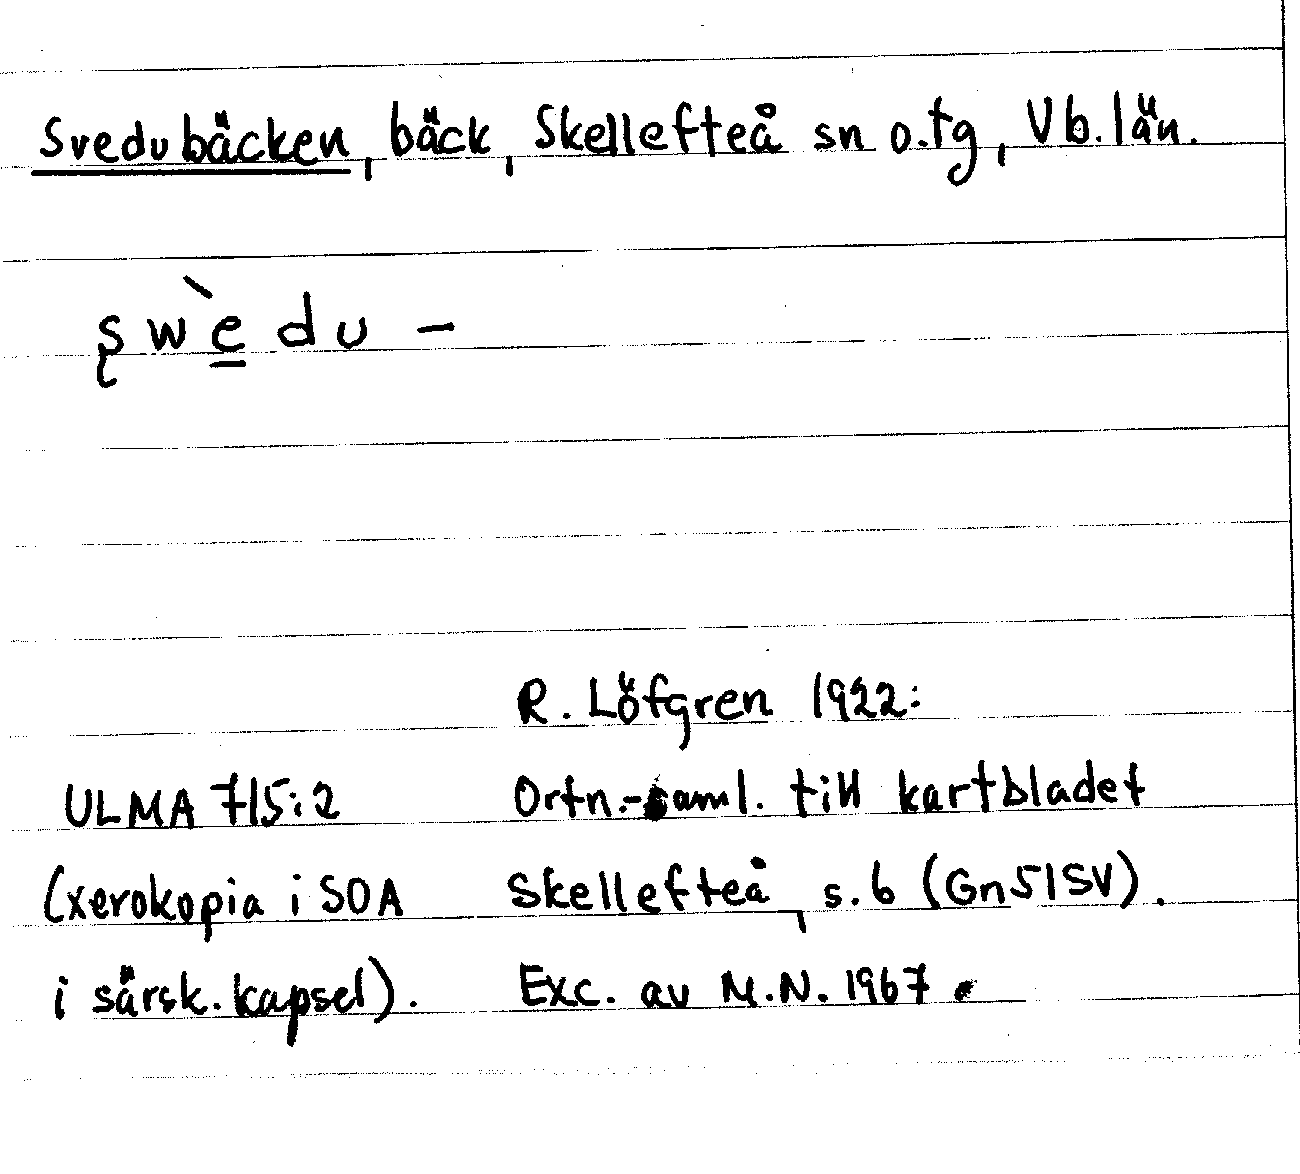 Svedubäcken, bäck, Skellefteå sn o. tg, Vb. län.
ʂwèdu –
R. Löfgren 1922:
ULMA 715:2 Ortn.-saml. till kartbladet
(xerokopia i SOA Skellefteå, s. 6 (Gn51SV).
i särsk. kapsel). Exc. av M.N. 1967.